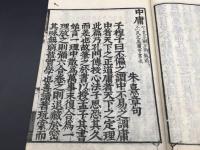 中庸
朱熹章句
子程子曰不偏之謂中不易之謂庸
中者天下之正道庸者天下之定理
此篇乃孔門傳授心法子思恐其久
而差也故筆之於書以授孟子其書
始言一理中散為萬事末復合為一
理放之則彌六合卷之則退藏於密
其味無窮皆實學也善讀者玩索而